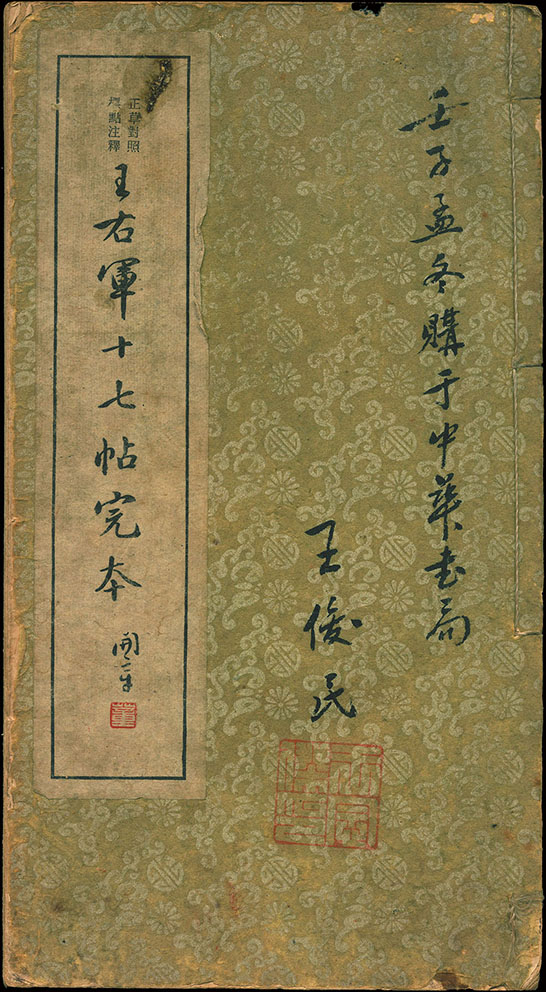 壬子孟冬購于中華书局
王俊民
正草對照
標點注釋
王右軍十七帖完本
開章
董